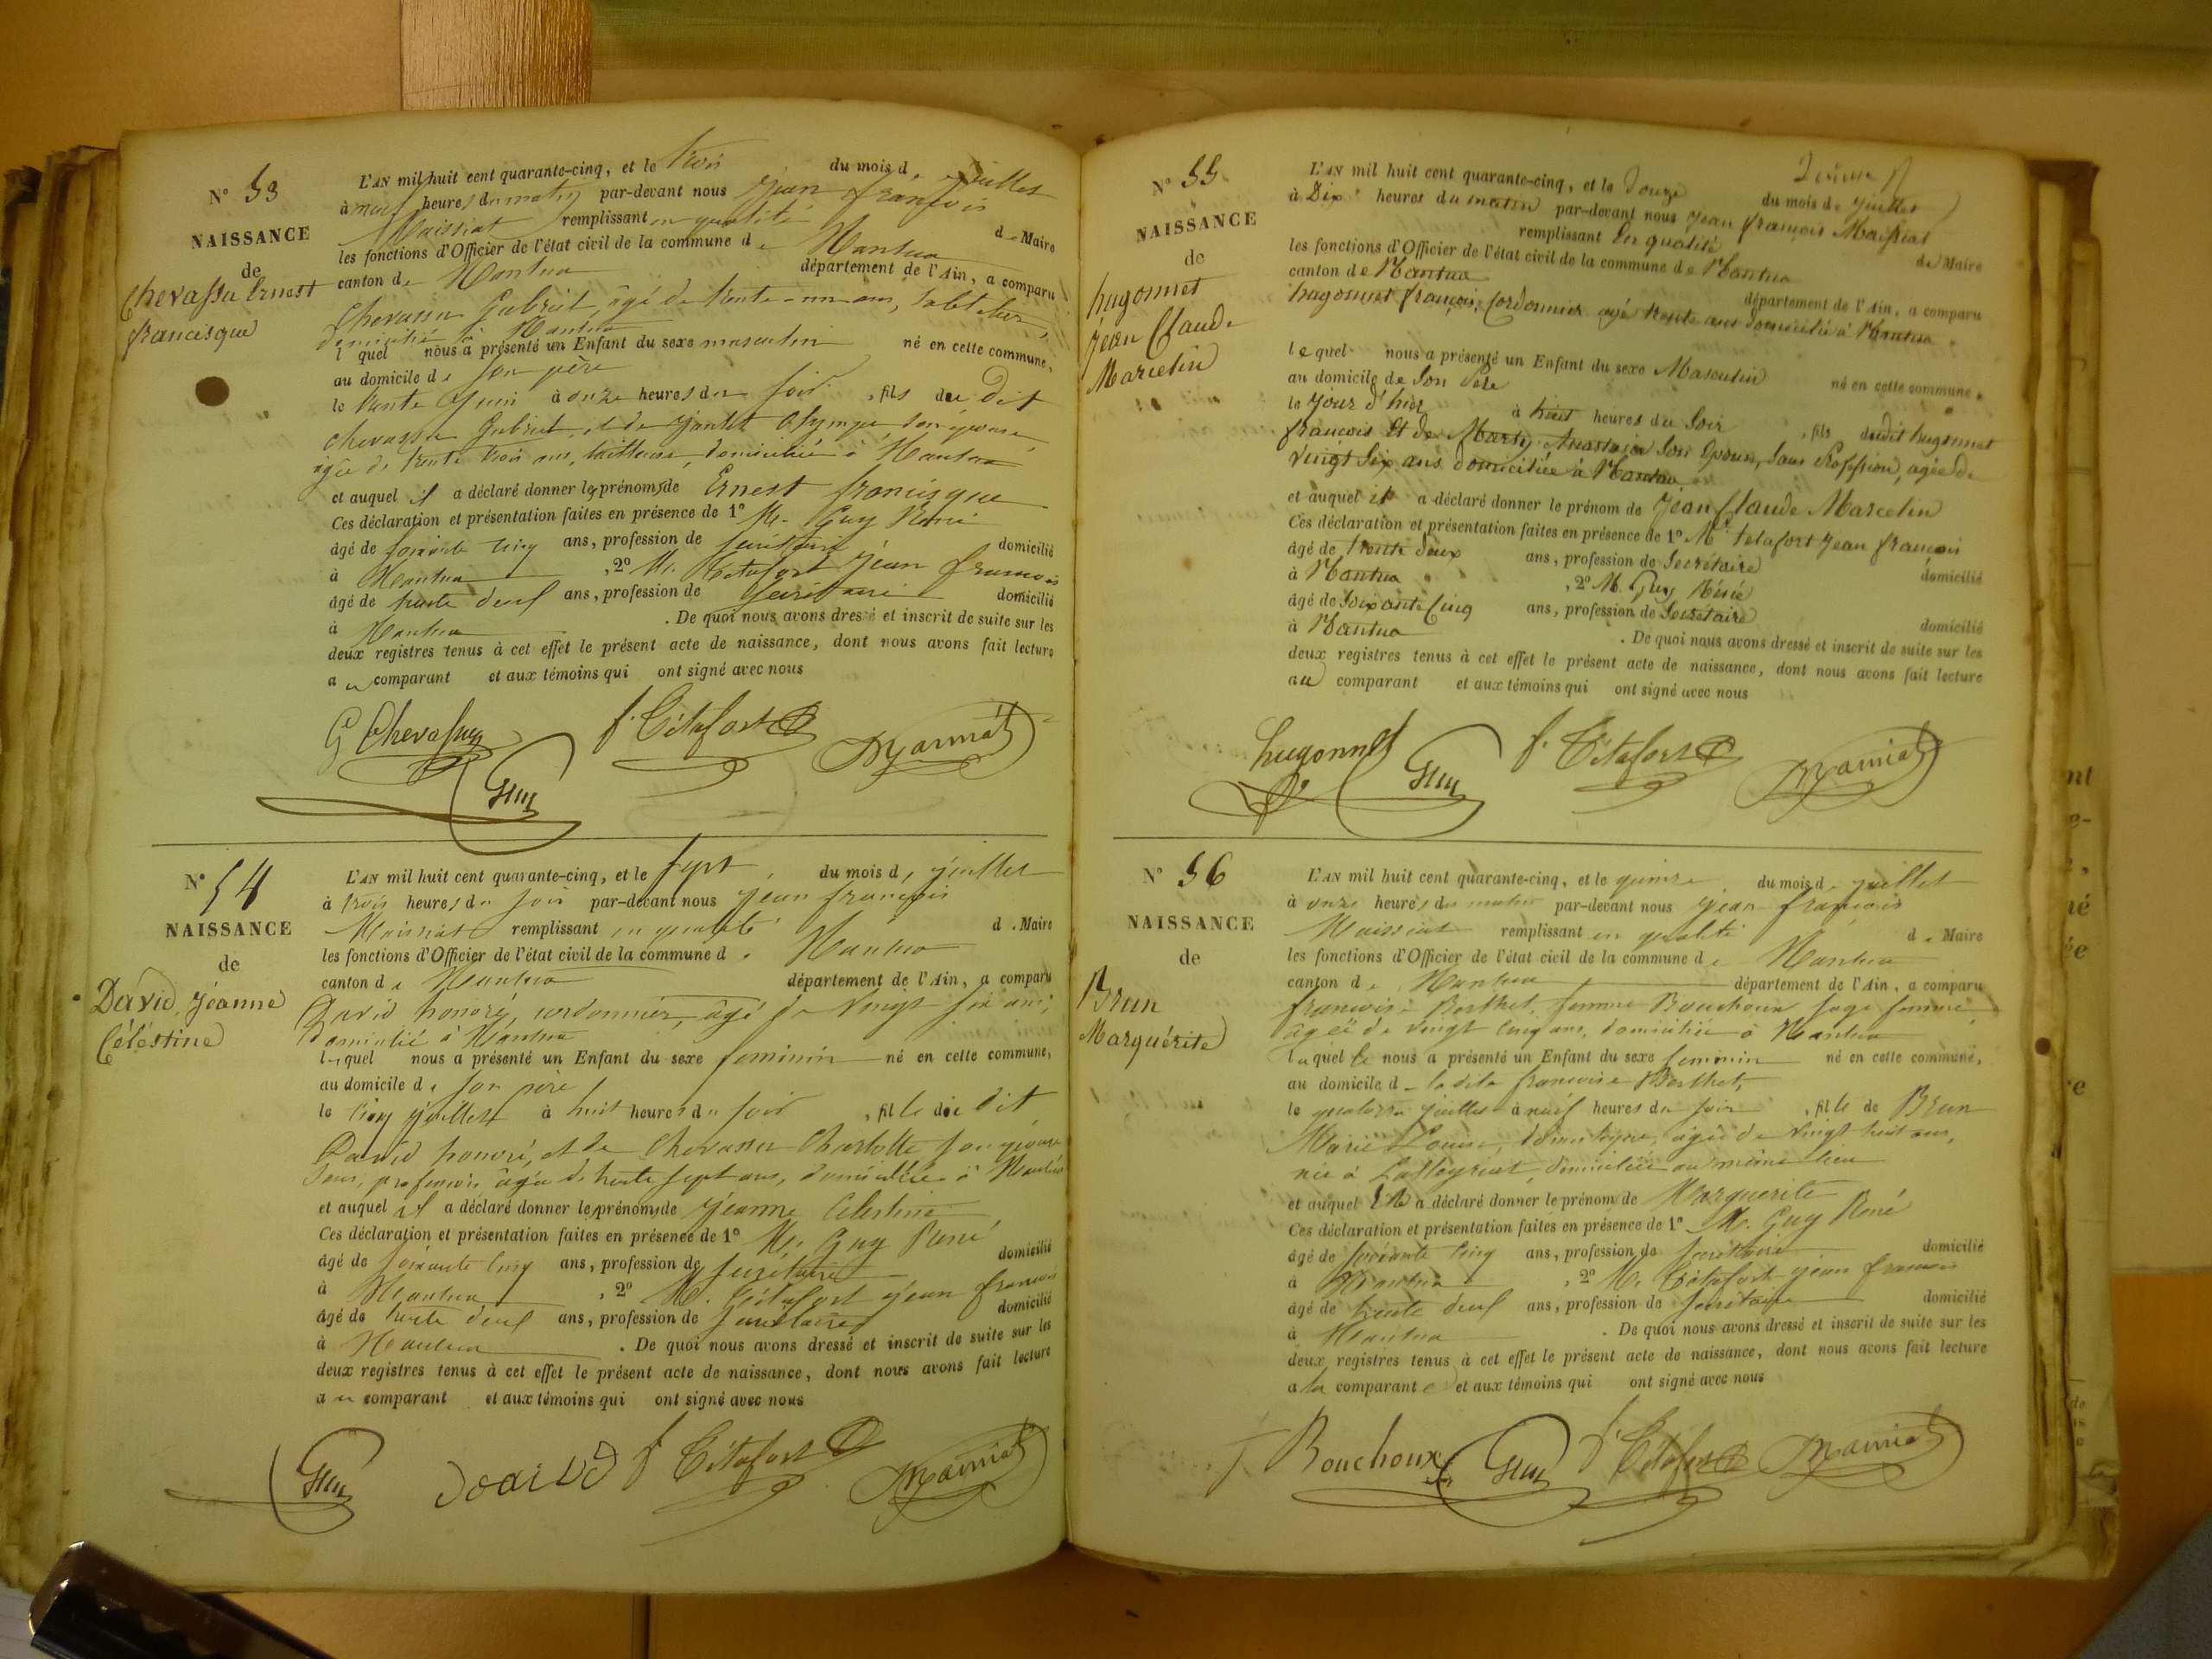 N° 53
NAISSANCE
de
Chevassu Ernest
francisque
L'AN mil huit cent quarante-cinq, et le trois du mois de juillet
à neuf heures du matin par-devant nous Jean françois
Maissiat remplissant en qualité de Maire
les fonctions d'Officier de l'état civil de la commune de Nantua
canton de Nantua département de l'Ain, a comparu
Chevassu Gabriel, âgé de trente-un ans,
domicilié à Nantua
lequel nous a présenté un Enfant du sexe masculin né en cette commune,
au domicile de son père
le trente juin à onze heures du soir, fils du dit
chevassu Gabriel, et de Jantet Olympe son épouse
âgée de trente trois ans, tailleuse, domiciliée à Nantua
et auquel il a déclaré donner les prénoms de Ernest francisque
Ces déclaration et présentation faites en présence de 1° M. Guy René
âgé de soixante cinq ans, profession de secrétaire domicilié
à Nantua, 2° M. Tétafort Jean françois
âgé de trente deux ans, profession de secrétaire domicilié
à Nantua. De quoi nous avons dressé et inscrit de suite sur les
deux registres tenus à cet effet le présent acte de naissance, dont nous avons fait lecture
au comparant et aux témoins qui ont signé avec nous
G Chevassu f. Tétafort Maissiat
Guy
N° 54
NAISSANCE
de
David, jéanne
Céléstine
L'AN mil huit cent quarante-cinq, et le sept du mois de juillet
à trois heures du soir par-devant nous Jean françois
Maissiat remplissant en qualité de Maire
les fonctions d'Officier de l'état civil de la commune de Nantua
canton de Nantua département de l'Ain, a comparu
David honoré, cordonnier, âgé de vingt six ans,
domicilié à Nantua
lequel nous a présenté un Enfant du sexe feminin né en cette commune,
au domicile de son père
le cinq juillet à huit heures du soir, fille du dit
David honoré, et de Chevassu Charlotte son épouse
sans profession âgée de trente sept ans, domiciliée à Nantua
et auquel il a déclaré donner les prénoms de jéanne Célestine
Ces déclaration et présentation faites en présence de 1° M. Guy René
âgé de soixante cinq ans, profession de secrétaire domicilié
à Nantua, 2° M. Tétafort Jean françois
âgé de trente deux ans, profession de secrétaire domicilié
à Nantua. De quoi nous avons dressé et inscrit de suite sur les
deux registres tenus à cet effet le présent acte de naissance, dont nous avons fait lecture
au comparant et aux témoins qui ont signé avec nous
Guy david f. Tétafort Maissiat
N° 55
NAISSANCE
de
hugonnet
jean Claude
Marcelin
L'AN mil huit cent quarante-cinq, et le douze du mois de juillet
à Dix heures du matin par-devant nous Jean françois Maissiat
remplissant En qualité de Maire
les fonctions d'Officier de l'état civil de la commune de Nantua
canton de Nantua département de l'Ain, a comparu
hugonnet françois, Cordonnier agé trente ans domicilié à Nantua
lequel nous a présenté un Enfant du sexe Masculin né en cette commune,
au domicile de son Père
le jour d'hier à huit heures du soir, fils du dit hugonnet
françois Et de Marty Anastasie son Epouse, sans Profession, agée de
vingt six ans domiciliée à Nantua
et auquel il a déclaré donner le prénom de Jean Claude Marcelin
Ces déclaration et présentation faites en présence de 1° Mr. tetafort Jean françois
âgé de trente deux ans, profession de Secrétaire domicilié
à Nantua, 2° M. Guy Réné
âgé de Soixante Cinq ans, profession de Secrétaire domicilié
à Nantua. De quoi nous avons dressé et inscrit de suite sur les
deux registres tenus à cet effet le présent acte de naissance, dont nous avons fait lecture
au comparant et aux témoins qui ont signé avec nous
hugonnet Guy f. Tétafort Maissiat
N° 56
NAISSANCE
de
Brun
Marguérite
L'AN mil huit cent quarante-cinq, et le quinze du mois de juillet
à onze heures du matin par-devant nous jean françois
Maissiat remplissant en qualité de Maire
les fonctions d'Officier de l'état civil de la commune de Nantua
canton de Nantua département de l'Ain, a comparu
françoise Berthet, femme Bouchoux sage femme,
âgée de vingt cinq ans, domiciliée à Nantua
laquelle nous a présenté un Enfant du sexe feminin né en cette commune,
au domicile de la dite françoise Berthet,
le quatorze juillet à neuf heures du soir, fille de Brun
Marie Louise, domestique, âgée de vingt huit ans,
née à Lalleyriat, domiciliée au même lieu
et auquel Elle a déclaré donner le prénom de Marguerite
Ces déclaration et présentation faites en présence de 1° M. Guy René
âgé de soixante cinq ans, profession de secrétaire domicilié
à Nantua, 2° M. Tétafort jean françois
âgé de trente deux ans, profession de secrétaire domicilié
à Nantua. De quoi nous avons dressé et inscrit de suite sur les
deux registres tenus à cet effet le présent acte de naissance, dont nous avons fait lecture
a la comparante et aux témoins qui ont signé avec nous
f Bouchoux Guy f. Tétafort Maissiat